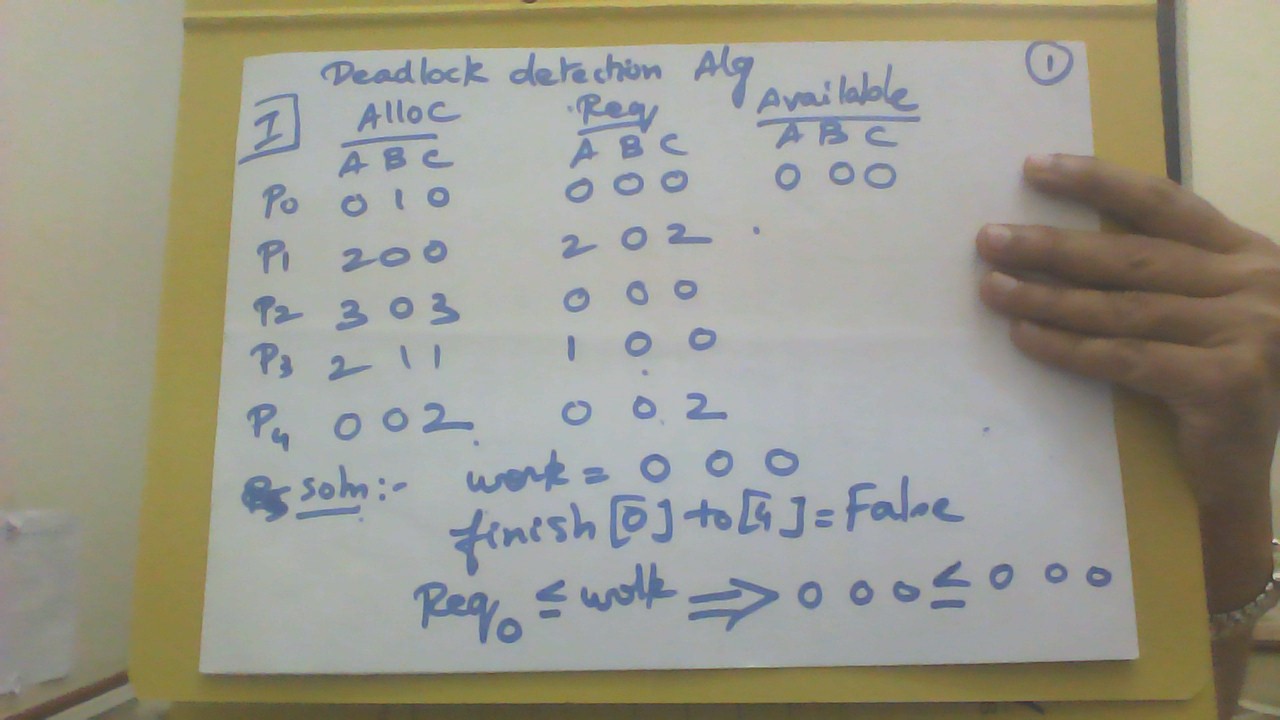 Deadlock detection Alg ①
I Alloc Req Available
A B C A B C A B C
P0 0 1 0 0 0 0 0 0 0
P1 2 0 0 2 0 2
P2 3 0 3 0 0 0
P3 2 1 1 1 0 0
P4 0 0 2 0 0 2
soln:- work = 0 0 0
finish [0] to [4] = False
Req0 ≤ work ⇒ 0 0 0 ≤ 0 0 0